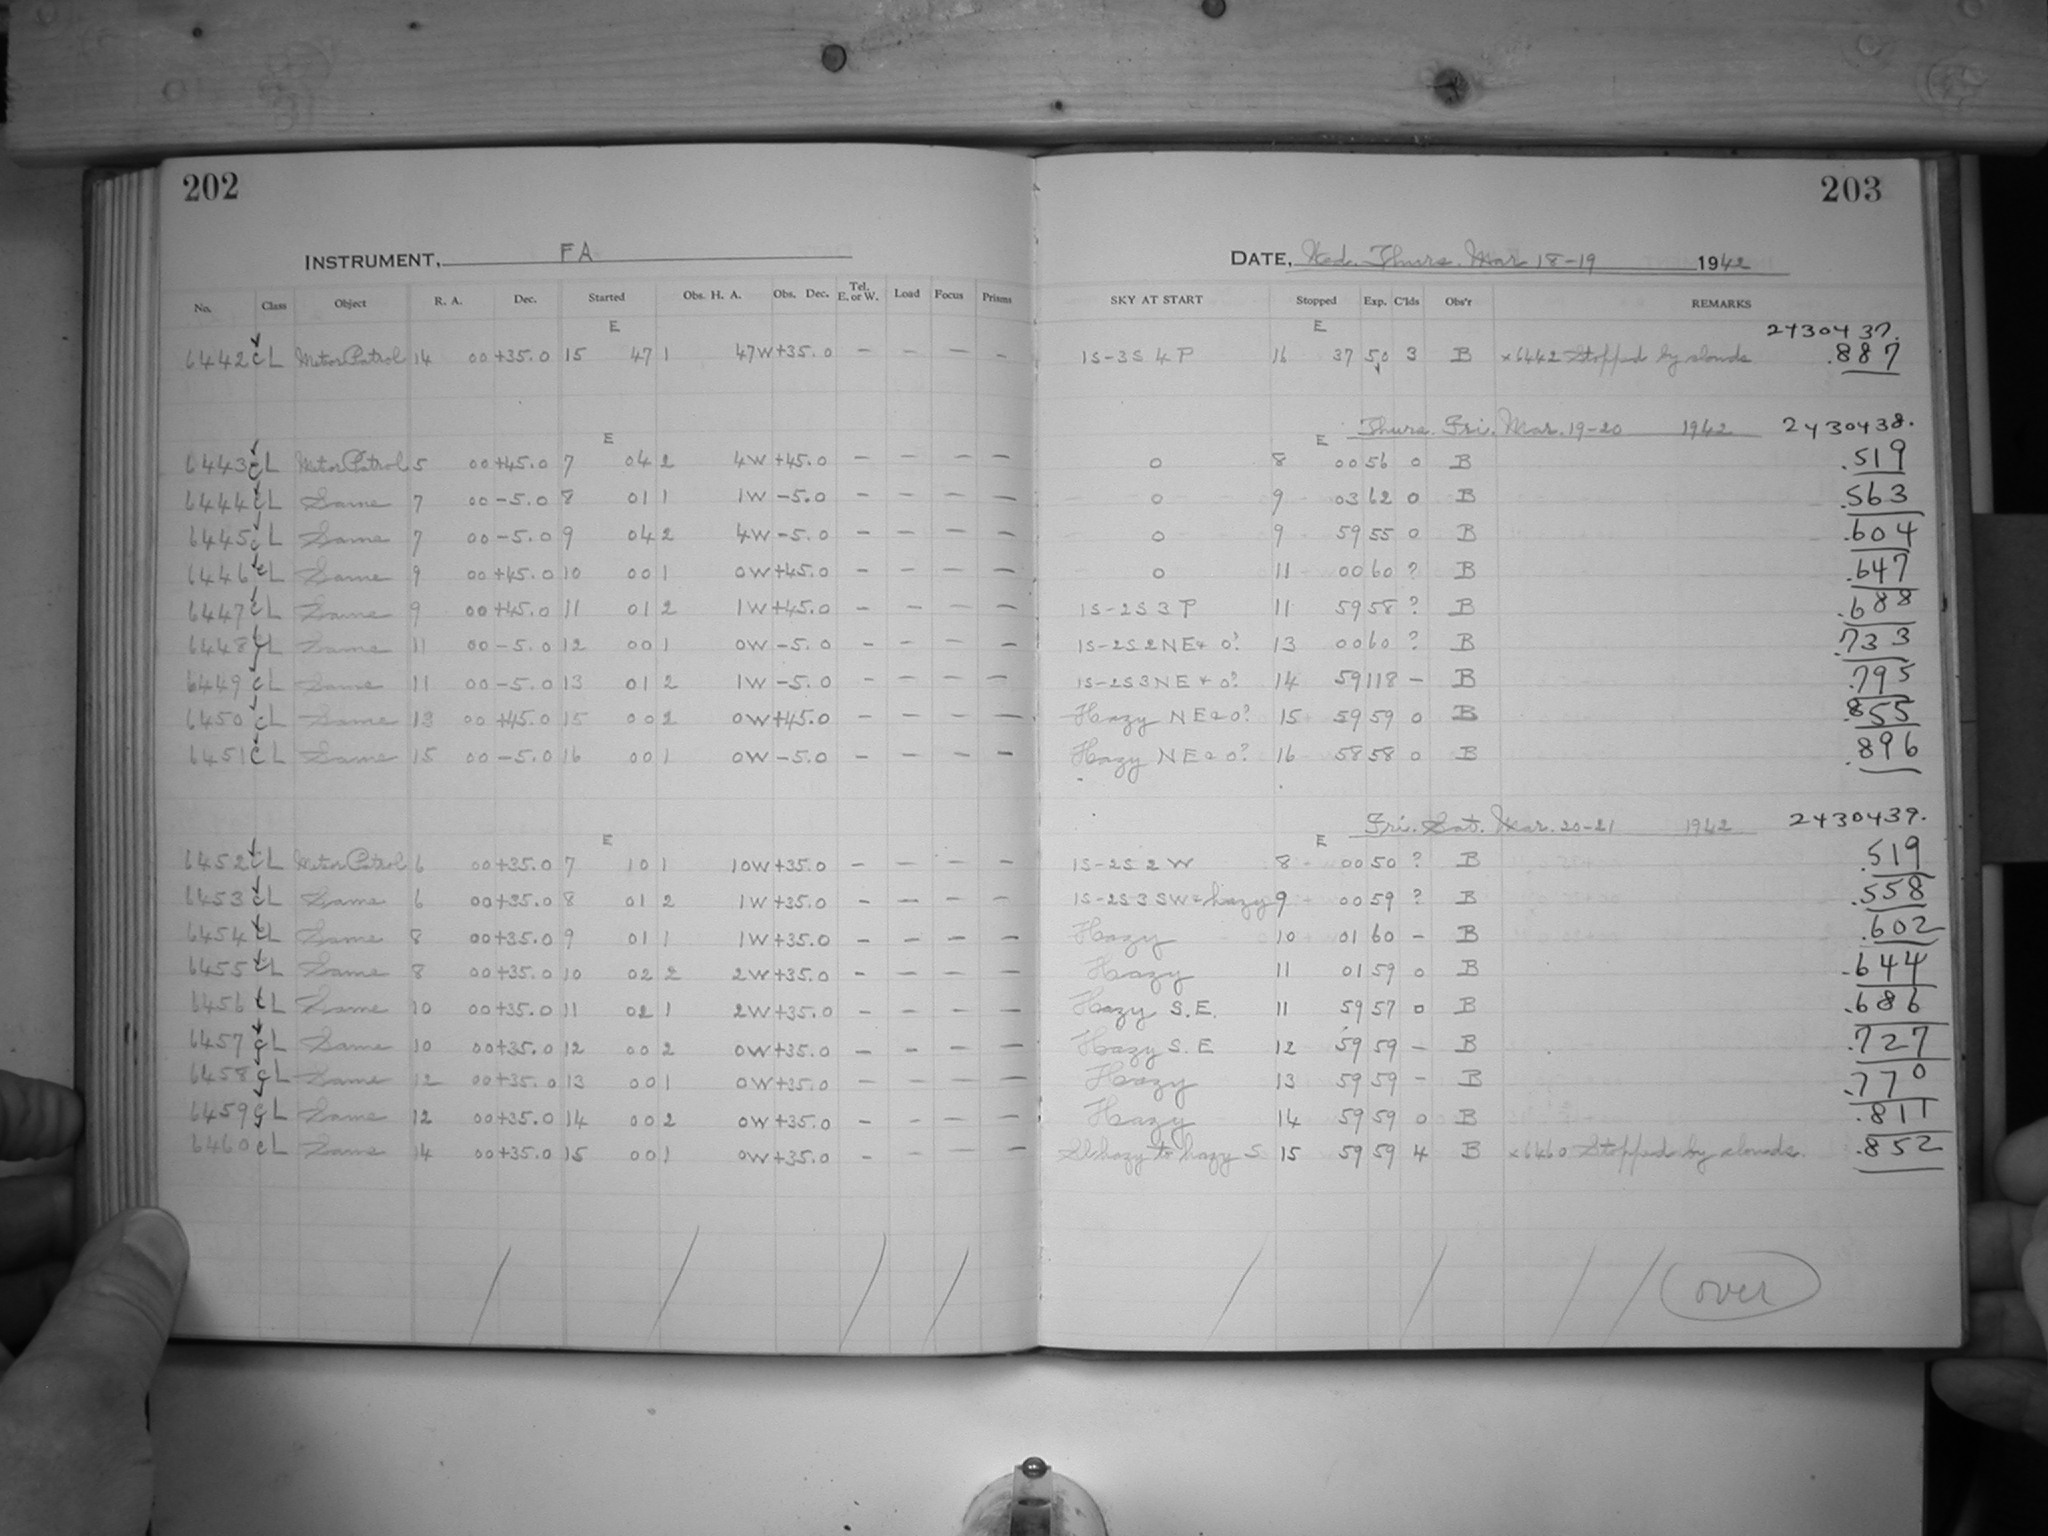 202
203
INSTRUMENT, FA
DATE, Wed. Thurs. Mar 18-19 1942
No. Class Object R. A. Dec. Started Obs. H. A. Obs. Dec. Tel. E. or W. Load Focus Prisms SKY AT START Stopped Exp. C'lds Obs'r REMARKS
E E 2430437.
6442 CL Metor Patrol 14 00 +35.0 15 47 1 47W +35.0 - - - - 1S-3S 4 P 16 37 50 3 B ×6442 Stopped by clouds .887
E E Thurs. Fri. Mar. 19-20 1942 2430438.
6443 CL Metor Patrol 5 00 +45.0 7 04 2 4W +45.0 - - - - 0 8 00 56 0 B .519
6444 CL Same 7 00 -5.0 8 01 1 1W -5.0 - - - - 0 9 03 62 0 B .563
6445 CL Same 7 00 -5.0 9 04 2 4W -5.0 - - - - 0 9 59 55 0 B .604
6446 CL Same 9 00 +45.0 10 00 1 0W +45.0 - - - - 0 11 00 60 ? B .647
6447 CL Same 9 00 +45.0 11 01 2 1W +45.0 - - - - 1S-2S 3 P 11 59 58 ? B .688
6448 CL Same 11 00 -5.0 12 00 1 0W -5.0 - - - - 1S-2S 2 NE & 0? 13 00 60 ? B .733
6449 CL Same 11 00 -5.0 13 01 2 1W -5.0 - - - - 1S-2S 3 NE & 0? 14 59 118 - B .795
6450 CL Same 13 00 +45.0 15 00 2 0W +45.0 - - - - Hazy NE & 0? 15 59 59 0 B .855
6451 CL Same 15 00 -5.0 16 00 1 0W -5.0 - - - - Hazy NE & 0? 16 58 58 0 B .896
E E Fri. Sat. Mar. 20-21 1942 2430439.
6452 CL Metor Patrol 6 00 +35.0 7 10 1 10W +35.0 - - - - 1S-2S 2 W 8 00 50 ? B .519
6453 CL Same 6 00 +35.0 8 01 2 1W +35.0 - - - - 1S-2S 3 SW & hazy 9 00 59 ? B .558
6454 CL Same 8 00 +35.0 9 01 1 1W +35.0 - - - - Hazy 10 01 60 - B .602
6455 CL Same 8 00 +35.0 10 02 2 2W +35.0 - - - - Hazy 11 01 59 0 B .644
6456 CL Same 10 00 +35.0 11 02 1 2W +35.0 - - - - Hazy S.E. 11 59 57 0 B .686
6457 CL Same 10 00 +35.0 12 00 2 0W +35.0 - - - - Hazy S.E 12 59 59 - B .727
6458 CL Same 12 00 +35.0 13 00 1 0W +35.0 - - - - Hazy 13 59 59 - B .770
6459 CL Same 12 00 +35.0 14 00 2 0W +35.0 - - - - Hazy 14 59 59 0 B .811
6460 CL Same 14 00 +35.0 15 00 1 0W +35.0 - - - - Sl hazy to hazy S. 15 59 59 4 B ×6460 Stopped by clouds. .852
over